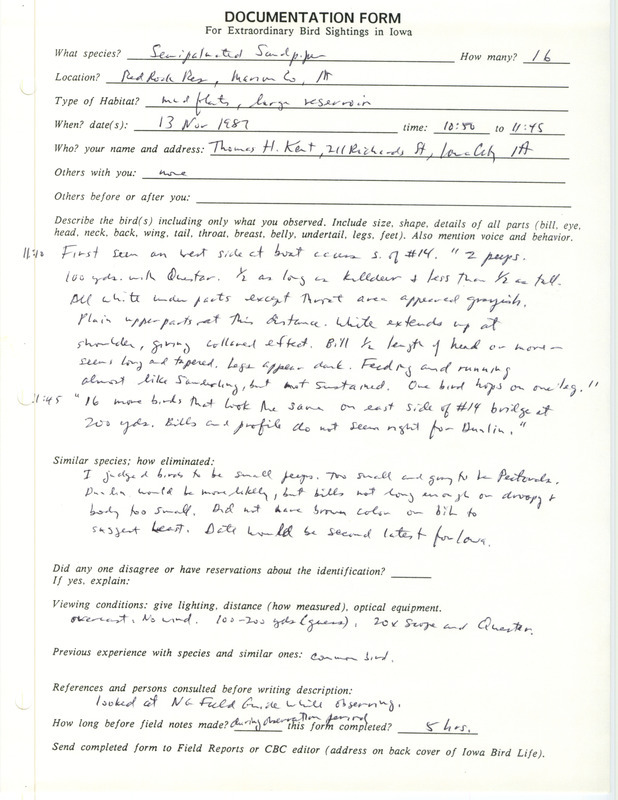 DOCUMENTATION FORM
For Extraordinary Bird Sightings in Iowa
What species? Semipalmated Sandpiper How many? 16
Location? Red Rock Res, Marion Co, IA
Type of Habitat? mudflats, large reservoir
When? date(s): 13 Nov 1987 time: 10:50 to 11:45
Who? your name and address: Thomas H. Kent, 211 Richards St, Iowa City IA
Others with you: none
Others before or after you:
Describe the bird(s) including only what you observed. Include size, shape, details of all parts (bill, eye,
head, neck, back, wing, tail, throat, breast, belly, undertail, legs, feet). Also mention voice and behavior.
11:10 First seen on west side at boat access s. of #14. "2 peeps.
100 yds. with Questar. 1/2 as long as Killdeer & less than 1/2 as tall.
All white under parts except throat area appeared grayish.
Plain upperparts at this distance. White extends up at
shoulder, giving collared effect. Bill 1/2 length of head or more -
seems long and tapered. Legs appear dark. Feeding and running
almost like Sanderling, but not sustained. One bird hops on one leg."
11:45 "16 more birds that look the same on east side of #14 bridge at
200 yds. Bills and profile do not seem right for Dunlin."
Similar species; how eliminated:
I judged birds to be small peeps. Too small and gray to be Pectorals.
Dunlin would be more likely, but bills not long enough or droopy &
body too small. Did not have brown color or bib to
suggest Least. Date would be second latest for Iowa.
Did any one disagree or have reservations about the identification?
If yes, explain:
Viewing conditions: give lighting, distance (how measured), optical equipment.
overcast. No wind. 100-200 yds (guess). 20x scope and Questar.
Previous experience with species and similar ones: common bird.
References and persons consulted before writing description:
looked at NG Field Guide while observing.
How long before field notes made? during observation period this form completed? 5 hrs.
Send completed form to Field Reports or CBC editor (address on back cover of Iowa Bird Life).